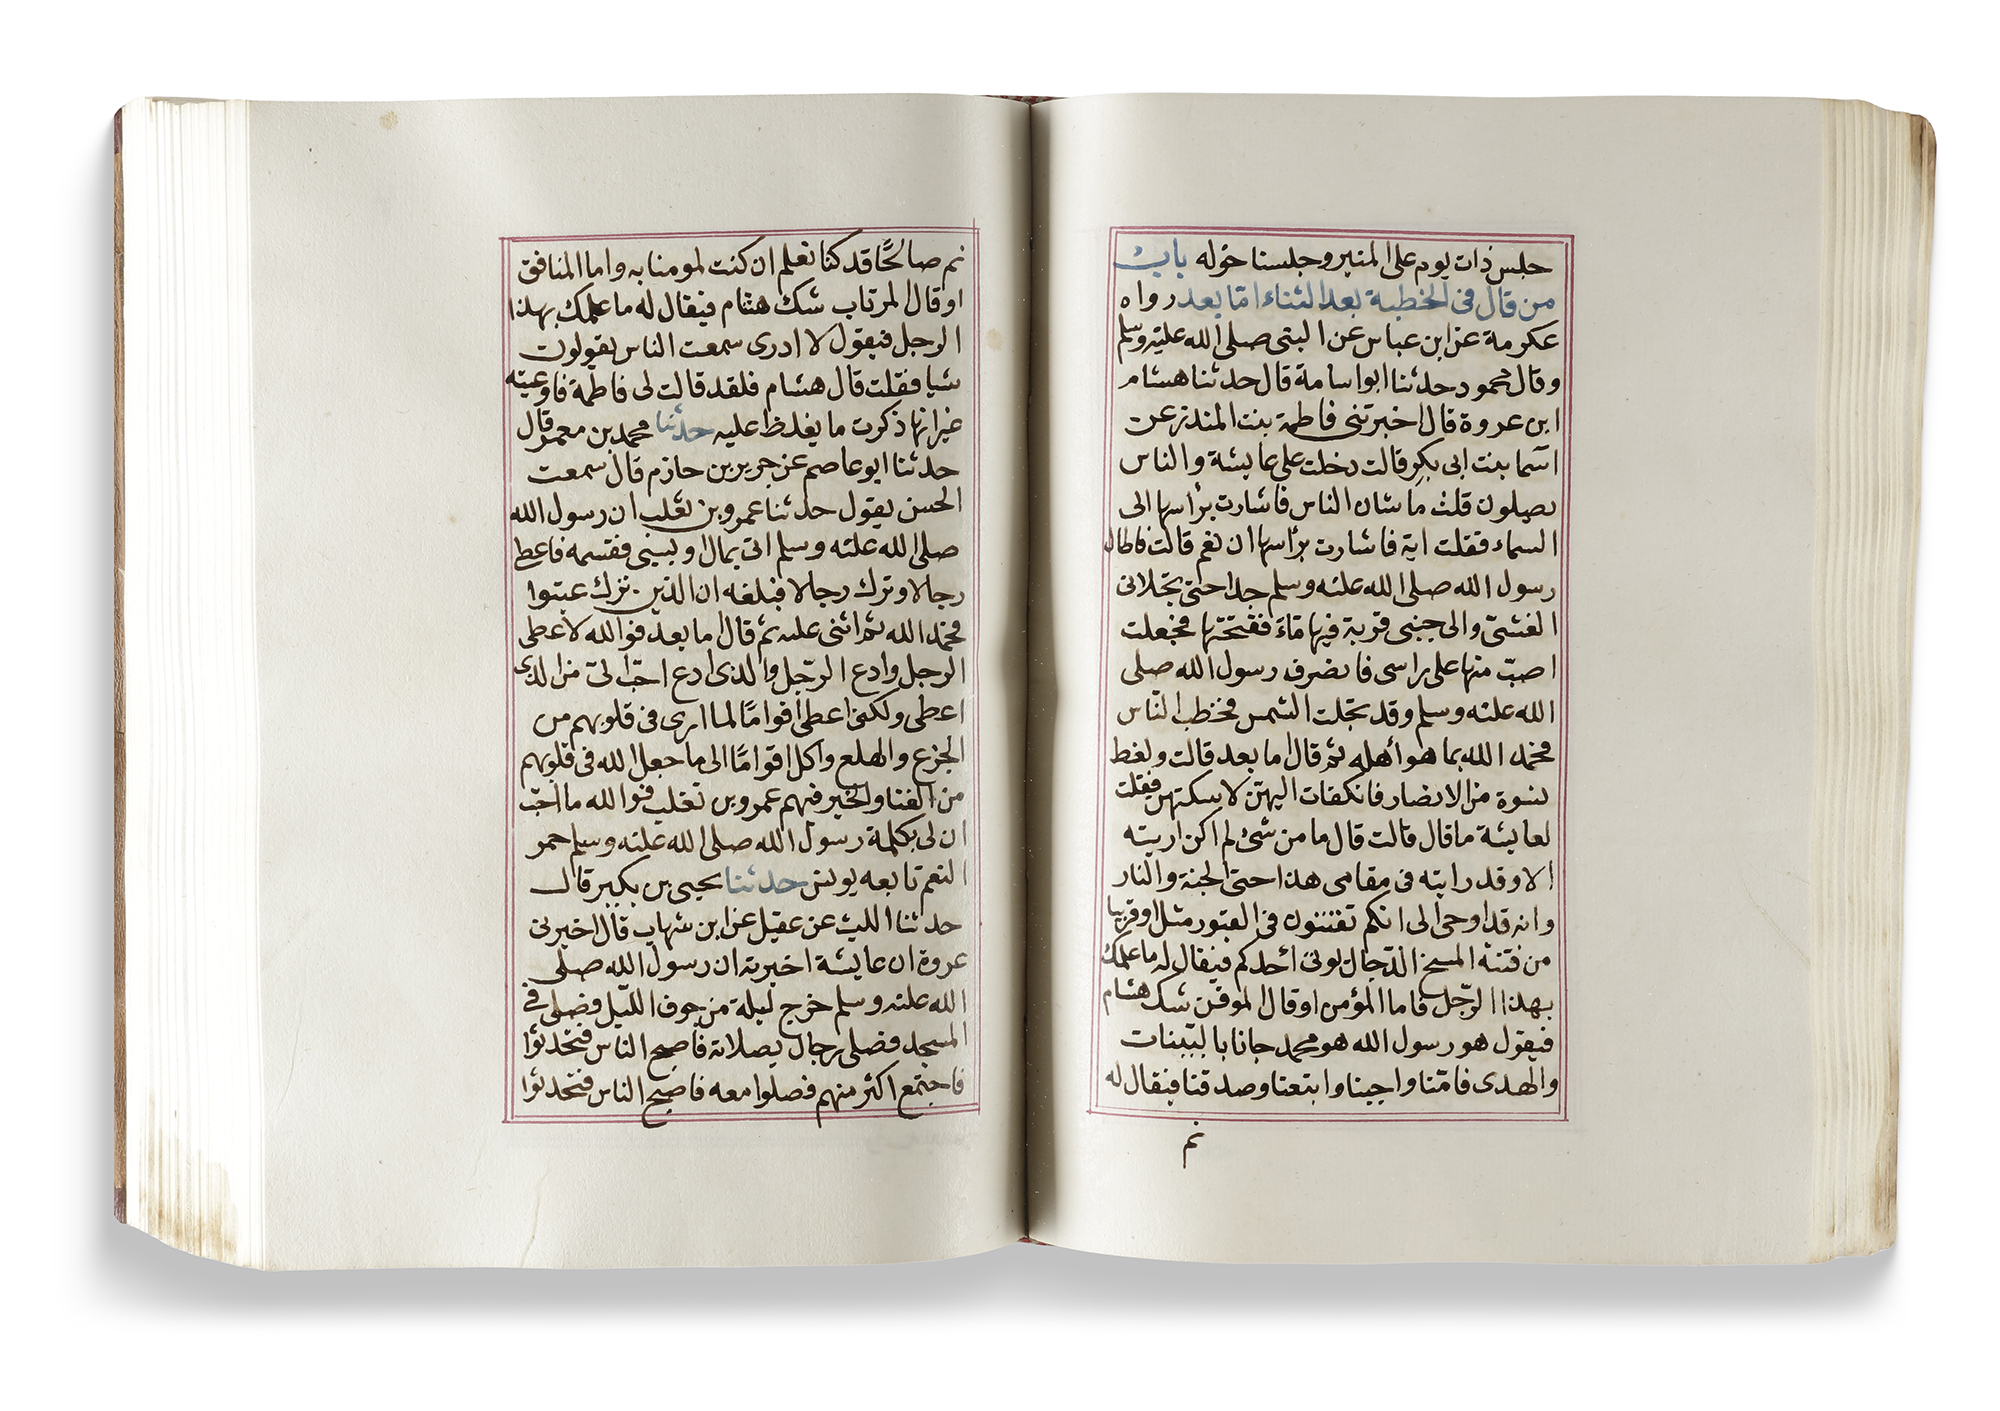 جلس ذات يوم على المنبر وجلسنا حوله باب
من قال فى الخطبة بعد الثناء امّا بعد رواه
عكرمة عن ابن عباس عن النبى صلى الله عليه وسلم
وقال محمود حدثنا ابواسامة قال حدثنا هشام
ابن عروة قال اخبرتنى فاطمة بنت المنذر عن
اسما بنت ابى بكر قالت دخلت على عايشة والناس
يصلون قلت ما شان الناس فاشارت برأسها الى
السماء فقلت اية فاشارت برأسها ان نعم قالت فاطال
رسول الله صلى الله عليه وسلم جدا حتى تجلانى
الغشىّ والى جنبى قربة فيها ماء ففتحتها فجعلت
اصبّ منها على راسى فانصرف رسول الله صلى
الله عليه وسلم وقد تجلت الشمس فخطب النّاس
فحمد الله بما هو أهله ثم قال اما بعد قالت ولغط
نسوة من الانصار فانكفات اليهنّ لاسكتهن فقلت
لعايشة ما قال قالت قال ما من شئ لم اكن اريته
الا وقد رايته فى مقامى هذا حتى الجنة والنار
وانه قد اوحى الى انكم تفتنون فى القبور مثل او قريبا
من فتنة المسيح الدّجال يوتى أحدكم فيقال له ما علمك
بهذا الرّجل فاما المؤمن او قال الموقن شك هشام
فيقول هو رسول الله هو محمد جانا بالبيّنات
والهدى فامنّا واجبنا وابتعنا وصدقنا فيقال له
نم
نم صالحًا قد كنا نعلم ان كنت لمومنا به واما المنافق
او قال المرتاب شك هشام فيقال له ما علمك بهذا
الرجل فيقول لا ادرى سمعت الناس يقولون
شيا فقلت قال هشام فلقد قالت لى فاطمة فاوعيته
غير انها ذكرت ما يغلظ عليه حدثنا محمد بن معمر قال
حدثنا ابوعاصم عن جرير بن حازم قال سمعت
الحسن يقول حدثنا عمرو بن تغلب ان رسول الله
صلى الله عليه وسلم اتى بمال او بسبى فقسمه فاعطى
رجالا وترك رجالا فبلغه ان الذين ترك عتبوا
فحمد الله ثم اثنى عليه ثم قال اما بعد فوالله لاعطى
الرجل وادع الرّجل والذى ادع احبّ الىّ من الذى
اعطى ولكنى اعطى اقوامًا لما ارى فى قلوبهم من
الجزع والهلع واكل اقوامًا الى ما جعل الله فى قلوبهم
من الغنا والخير فيهم عمرو بن تغلب فوالله ما احبّ
ان لى بكلمة رسول الله صلى الله عليه وسلم حمر
النعم تابعه يونس حدثنا يحيى بن بكير قال
حدثنا الليث عن عقيل عن ابن شهاب قال اخبرنى
عروة ان عايشة اخبرته ان رسول الله صلى
الله عليه وسلم خرج ليلة من جوف اللّيل فصلى فى
المسجد فصلى رجال بصلاته فأصبح الناس فتحدثوا
فاجتمع اكثر منهم فصلوا معه فاصبح الناس فتحدثوا